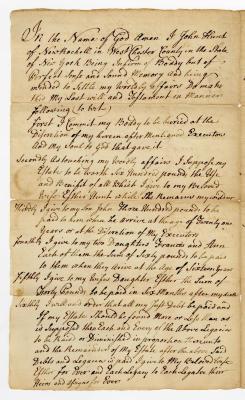 In the Name of God Amen I John Hunt
of New Rochell in West Chester County in the State
of New York Being Infirm of Body but of
Perfect Sense and Sound Memory and being
minded to Settle my Worldly Affairs Do make
this My Last will and Testament in Manner
following (to bet)
first I Commit my Boddy to be buried at the
Discretion of my herein after Mentioned Executors
and My Soul to God that gave it
Secondly as touching my Worldly affairs I Suppose my
Estate to be worth Six Hundred pounds the Use
and Benifit of all Which I give to my Beloved
Wife Esther Hunt while She Remains my widow
Thirdly I give to my Son John Three Hundred pounds to be
paid to him when he arrives at the age of Twenty one
Years or at the Discretion of My Executors
fourthly I give to my two Daughters Frances and Ann
Each of them the Sum of Sixty pounds to be paid
to them when they arive at the Age of Sixteen years
Fifthly I give to my Daughter Esther the Sum of
Forty Pounds to be paid in Six Months after my
Sixthly I will and order that all my Just Debts be paid and
If my Estate Should be found More or Less than as
is Supposed then Each and Every of the Above Legacies
to be Raised or Diminished in proportion thereunto
and the Remainder of My Estate after the above Said
Debts and Legacies is paid I give to My Beloved Wife
Esther for Ever and Each Legacy to Each Legatee their
Heirs and assigns for Ever